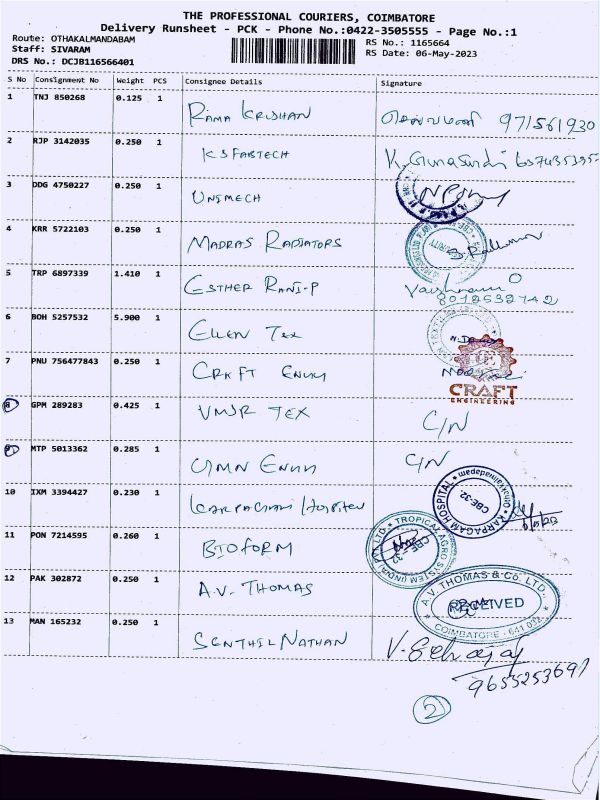 THE PROFESSIONAL COURIERS, COIMBATORE
Delivery Runsheet - PCK - Phone No.:0422-3505555 - Page No.:1
Route: OTHAKALMANDABAM
RS No.: 1165664
Staff: SIVARAM
RS Date: 06-May-2023
DRS No.: DCJB116566401
S No Consignment No Weight PCS Consignee Details Signature
1 TNJ 850268 0.125 1 RAMA KRISHAN செல்வமணி 971561930
2 RJP 3142035 0.250 1 KS FABTECH K. Gunasundri
3 DDG 4750227 0.250 1 UNIMECH
4 KRR 5722103 0.250 1 MADRAS RADIATORS
5 TRP 6897339 1.410 1 ESTHER RANI-P Vaishnavi
8012532742
6 BOH 5257532 5.900 1 ELLEN TEX
7 PNU 756477843 0.250 1 CRAFT ENGG
CRAFT
ENGINEERING
8 GPM 289283 0.425 1 VMJR TEX C/N
9 MTP 5013362 0.285 1 ENGG C/N
10 IXM 3394427 0.230 1 KARPAGAM HOSPITAL
KARPAGAM HOSPITAL Othakkalmandapam CBE-32
11 PON 7214595 0.260 1 BIOFORM
TROPICAL AGRO SYSTEM (INDIA) PVT LTD CBE-32
12 PAK 302872 0.250 1 A.V. THOMAS
A.V. THOMAS & Co. LTD.,
RECEIVED
COIMBATORE - 641 032
13 MAN 165232 0.250 1 SENTHIL NATHAN
9655253691
2